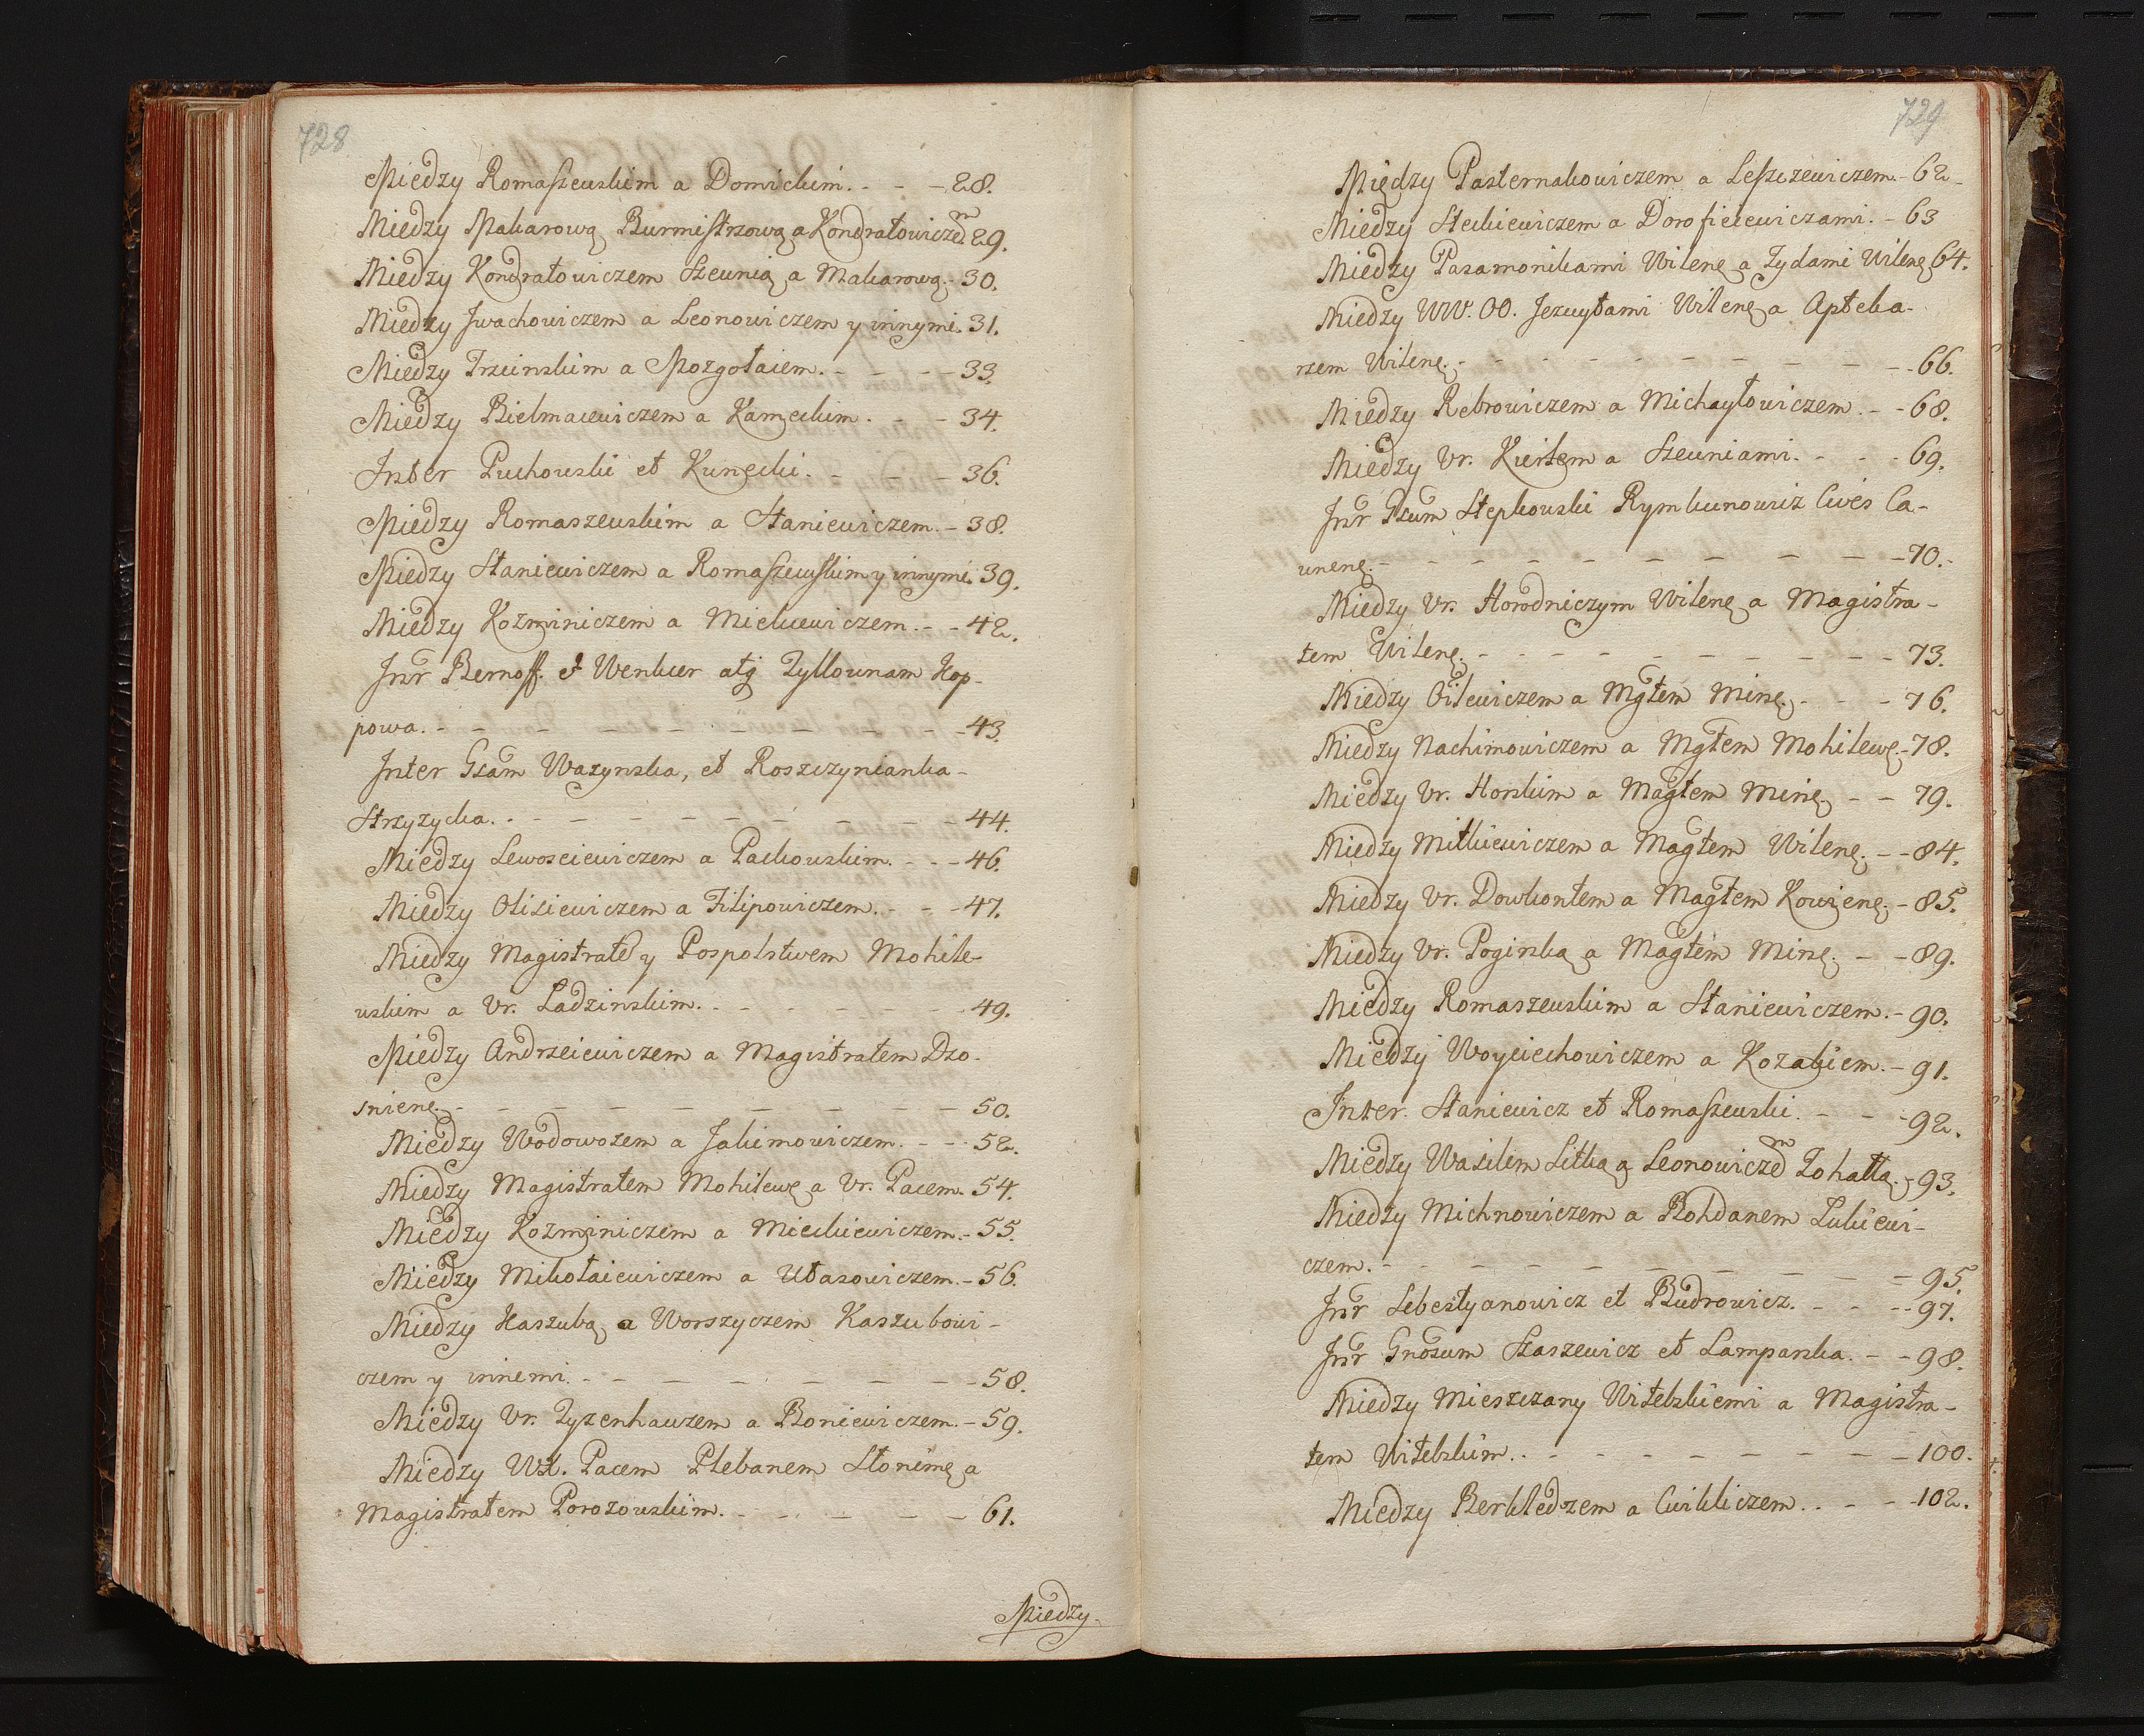 728
Między Romaszewskim a Domickim. - - - 28.
Między Makarową Burmistrzową a Kondratowiczem 29.
Między Kondratowiczem Szewnią a Makarową. 30.
Między Jwachowiczem a Leonowiczem y innymi. 31.
Między Trzeinskim a Mozgołaiem. - - - - 33.
Między Bielmacewiczem a Kamęckim. - - - 34.
Inter Puchowski et Kunęcki. - - - 36.
Między Romaszewskim a Staniewiczem. - 38.
Między Staniewiczem a Romaszewskim y innymi. 39.
Między Kozminiczem a Mickiewiczem. - - 42.
Jnr Bernoff. & Wenkier atq Zyllownam Hop-
powa. - - - - - - - - - 43.
Inter Gsam Wazynska, et Roszczyncanka-
Strzyzycka. - - - - - - - - 44.
Między Lewosciewiczem a Packowskim. - - - 46.
Między Olisiewiczem a Filipowiczem. - - - 47.
Między Magistratem y Pospolstwem Mohile-
wskim a Ur. Ladzinskim. - - - - - - 49.
Między Andrzeiewiczem a Magistratem Dzo-
snienę. - - - - - - - - - 50.
Między Wodowozem a Jakimowiczem. - - - 52.
Między Magistratem Mohilewę a Ur. Pacem. 54.
Między Kozminiczem a Mieckiewiczem. - 55.
Między Mikołaiewiczem a Utasowiczem. - 56.
Między Kaszubą a Worszyczem Kaszubowi-
czem y innemi. - - - - - - - 58.
Między Ur. Tyzenhauzem a Boniewiczem. - 59.
Między WX. Pacem Plebanem Słonimę a
Magistratem Porozowskim. - - - - - 61.
Między
729
Między Pasternakowiczem a Leszczewiczem. - 62
Między Steckiewiczem a Dorofieiewiczami. - 63
Między Pasamonikami Wilenę a Żydami Wilenę 64.
Między WW. OO. Jezuytami Wilenę a Apteka-
rzem Wilenę. - - - - - - - - - 66.
Między Rebrowiczem a Michayłowiczem. - - 68.
Między Ur. Kierłem a Szewniami. - - - 69.
Jnr Psum Stepkowski Rymkunowicz Cives Ca-
unenę. - - - - - - - - - 70.
Między Ur. Horodniczym Wilenę a Magistra-
tem Wilenę. - - - - - - - - - 73.
Między Oilewiczem a Mgtem Minę. - - - 76.
Między Nachimowiczem a Mgtem Mohilewę. - 78.
Między Ur. Horskim a Magtem Minę. - - 79.
Między Mitkiewiczem a Magtem Wilenę. - - 84.
Między Ur. Dowkontem a Magtem Kowienę. - 85.
Między Ur. Poginską a Magtem Minę. - - 89.
Między Romaszewskim a Staniewiczem. - 90.
Między Woyciechowiczem a Kozakiem. - 91.
Inter. Staniewicz et Romaszewski. - - - 92.
Między Wasilem Litką a Leonowiczem Zohattą. - 93.
Między Michnowiczem a Bohdanem Lukiewi-
czem. - - - - - - - - - 95.
Jnr Sebestyanowicz et Budrowicz. - - - 97.
Jnr Gnosum Staszewicz et Lamparska. - - 98.
Między Mieszczany Witebskiemi a Magistra-
tem Witebskim. - - - - - - - 100.
Między Berkledzem a Cwikliczem. - - - 102.